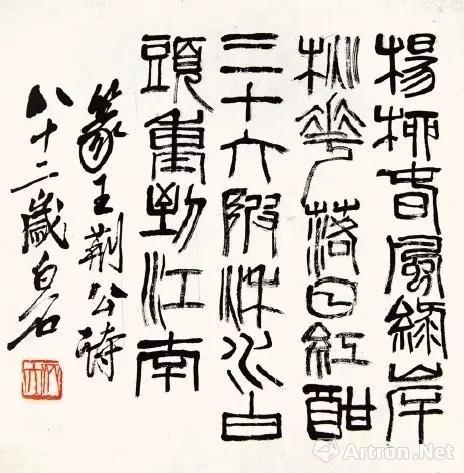 楊柳春風綠岸
桃花落日紅酣
三十六陂流水白
頭重到江南
篆王荊公詩
八十二歲白石
Artron.Net